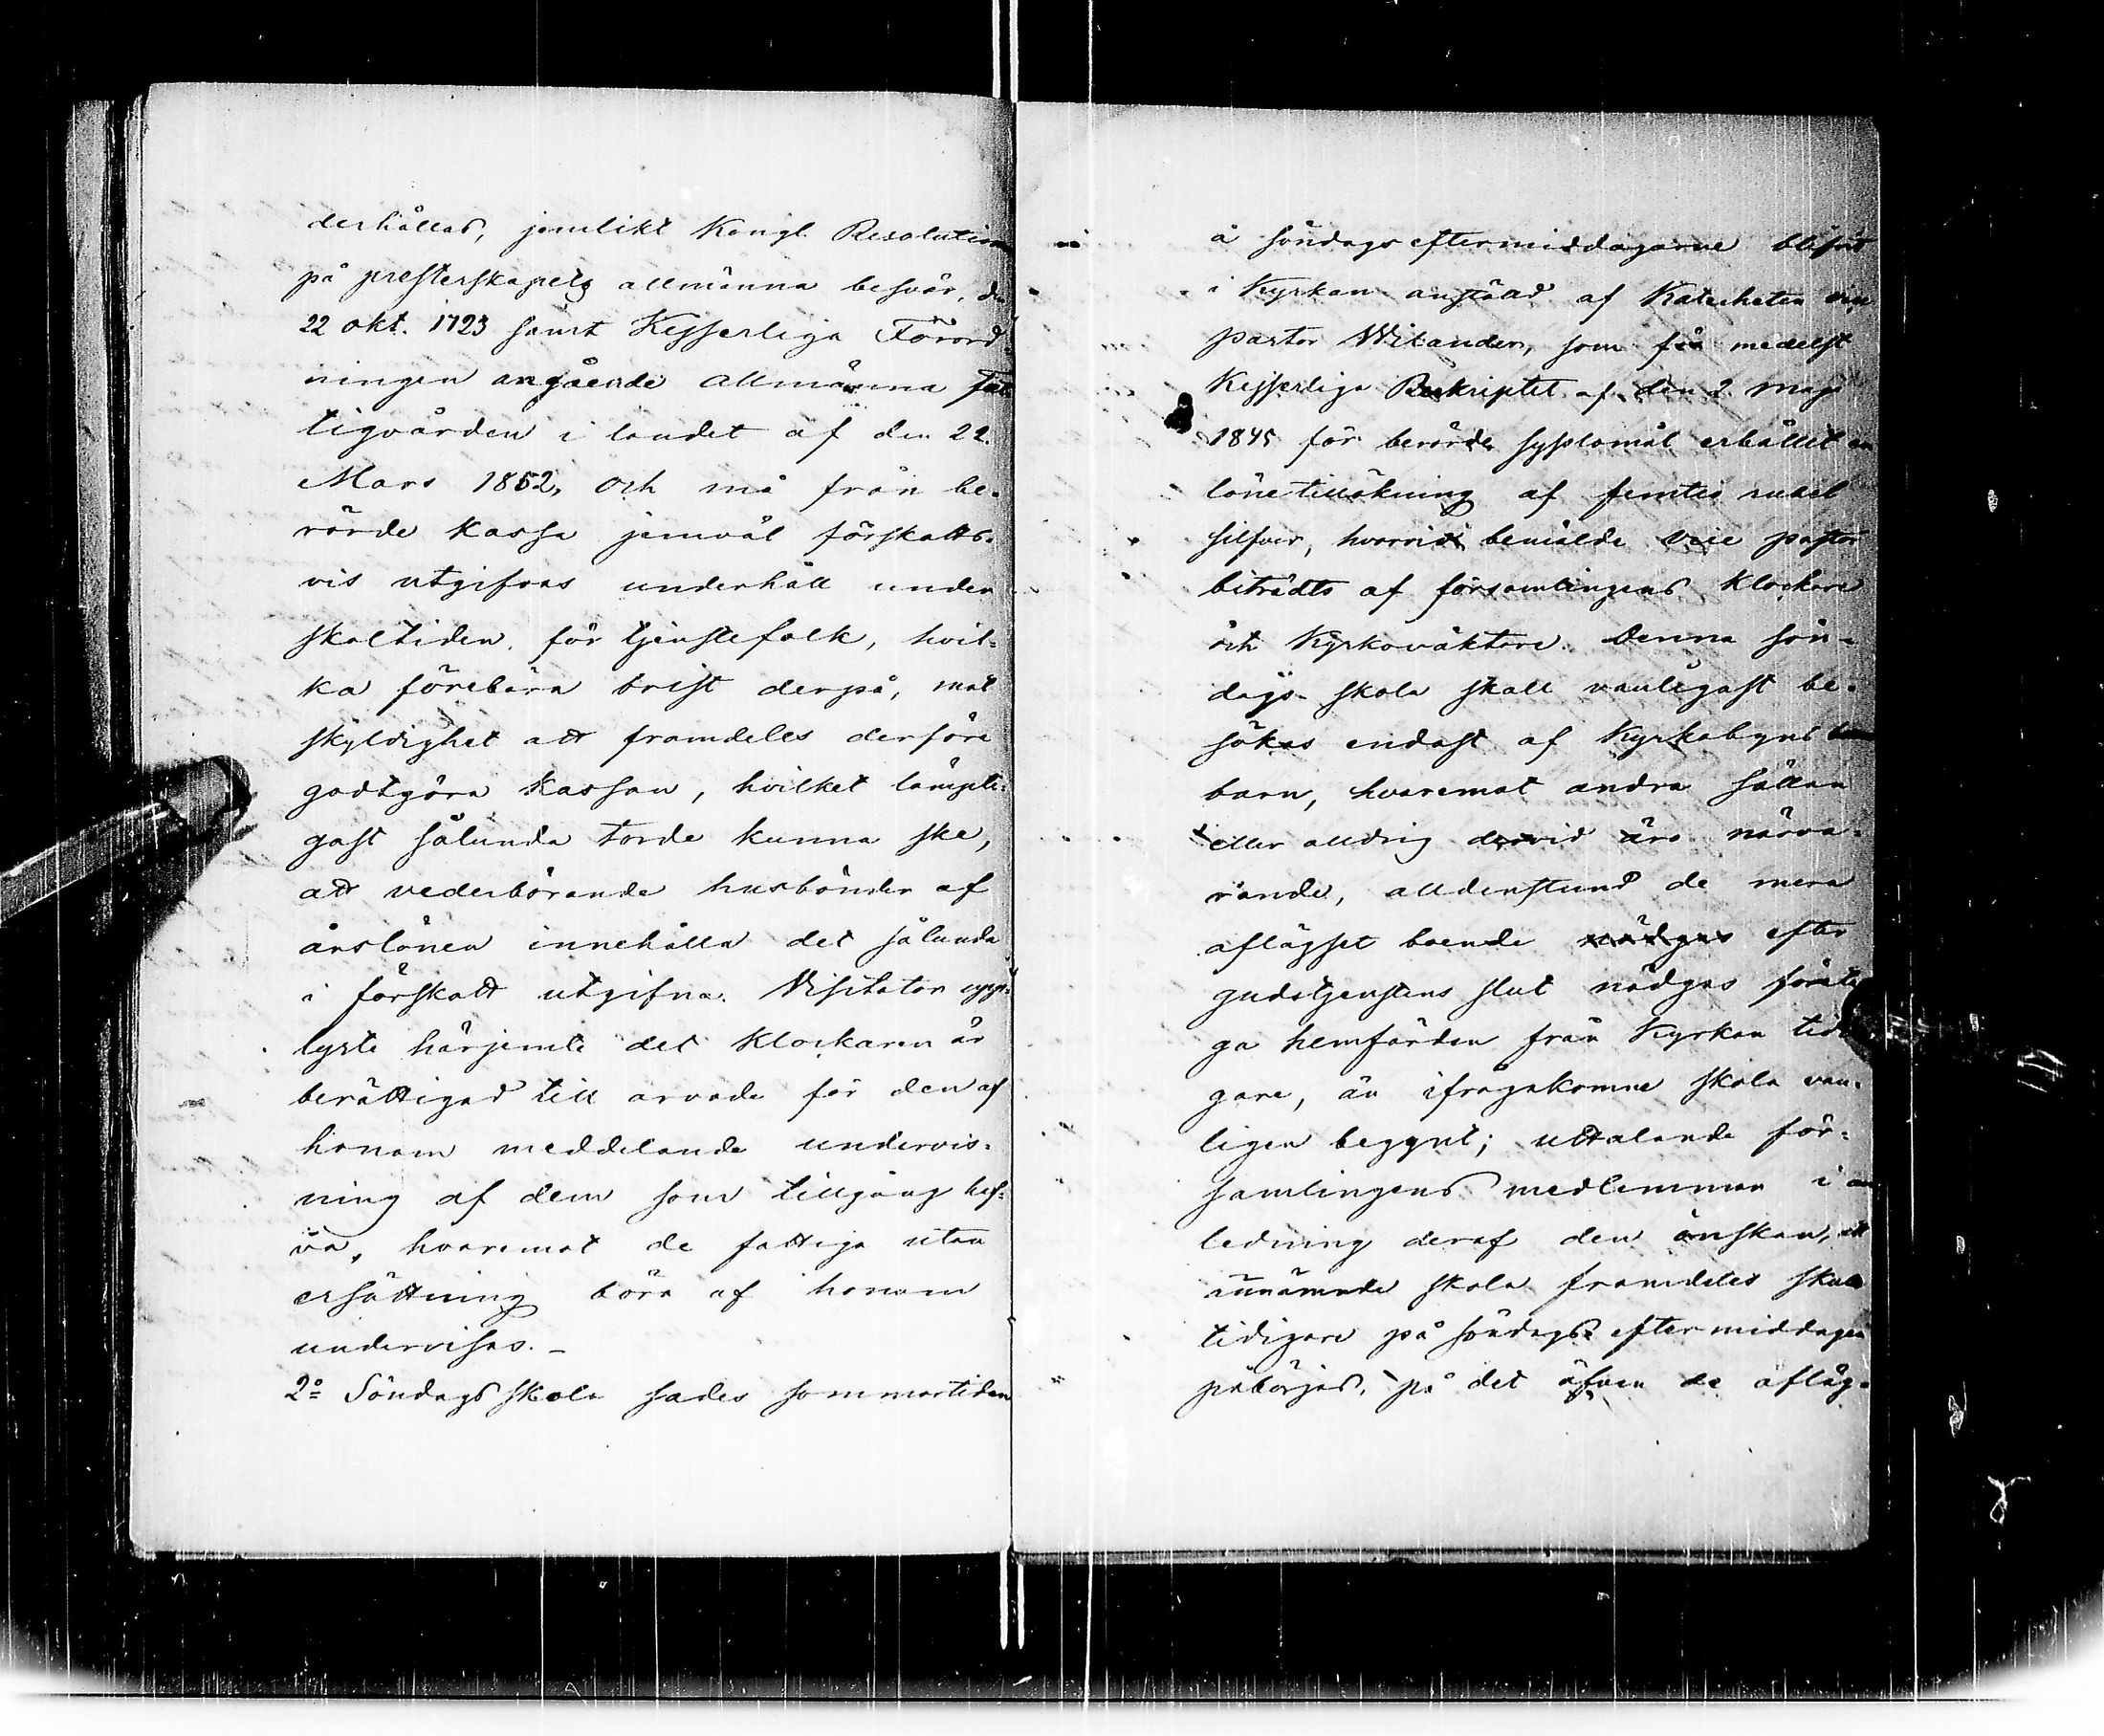 derhållas, jemlikt Kongl. Resolution
på presterskapets allmänna besvär, den
22 Okt. 1723 samt Kejserliga Förord-
ningen angående allmänna fat-
tigvården i landet af den 22.
Mars 1852, och må från be-
rörde kassa jemväl förskotts-
vis utgifvas underhåll under
skoltiden för tjenstefolk, hvil-
ka förebära brist derpå, mot
skyldighet att framdeles derföre
godtgöra kassan, hvilket lämpli-
gast sålunda torde kunna ske,
att vederbörande husbönder af
årslönen innehålla det sålunda
i förskott utgifna. Visitator upp-
lyste härjemte det klockaren är
berättigad till arvode för den af
honom meddelande undervis-
ning af dem som tillgång haf-
va, hvaremot de fattiga utan
ersättning böra af honom
undervisas. –
2:o Söndags skola sades sommartiden
å söndags eftermiddagarne blifvit
i Kyrkan anstäld af Katecheten vice
pastor Wilander, som från medelst
Kejserliga Reskriptet af den 2. Maji
1845 för berörde sysslomål erhållit en
lönetillökning af femtio rubel
silfver, hvarvid bemälde vice pastor
biträdts af församlingens Klockare
och Kyrkoväktare. Denna sön-
dags skola skall vanligast be-
sökas endast af Kyrkobyns
barn, hvaremot andra sällan
eller alldrig dervid äro närva-
rande, alldenstund de mera
aflägset boende nödgas efter
gudstjenstens slut nödgas företa-
ga hemfärden från Kyrkan tidi-
gare, än ifrågakomne skola van-
ligen begynt; uttalande för-
samlingens medlemmar i an-
ledning deraf den önskan, att
omnämnde skola framdeles skall
tidigare på söndags eftermiddagen
påbörjas, på det äfven de afläg-